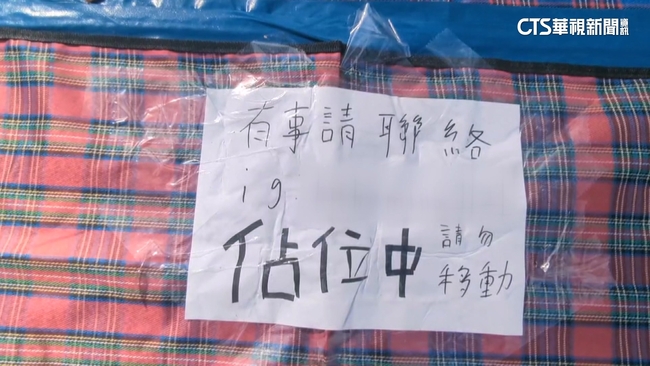 CTS華視新聞資訊
有事請聯絡
ig.
佔位中 請勿
移動